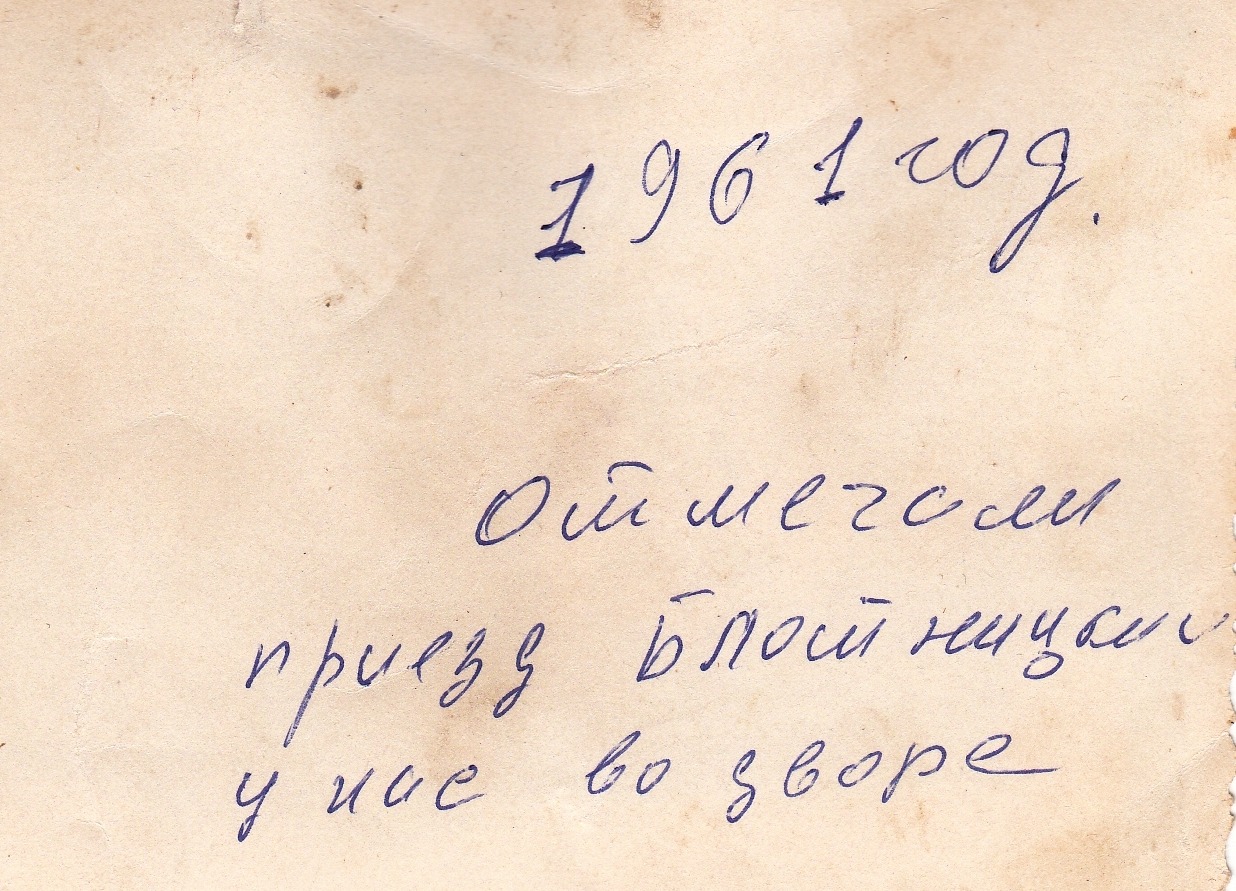 1961 год.
отмечали
приезд Блотницких
у нас во дворе